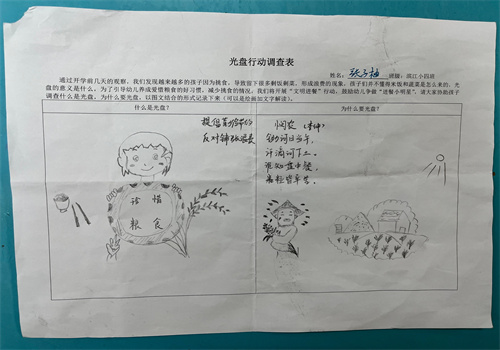 光盘行动调查表
姓名：张子柚 班级：滨江小四班
通过开学前几天的观察，我们发现越来越多的孩子因为挑食，导致剩下很多剩饭剩菜，形成浪费的现象，孩子们并不懂得米饭和蔬菜是怎么来的，光
盘的意义是什么，为了引导幼儿养成爱惜粮食的好习惯，减少挑食的情况，我们将开展“文明进餐”行动，鼓励幼儿争做“进餐小明星”，请大家协助孩子
调查什么是光盘，为什么要光盘，以图文结合的形式记录下来（可以是绘画加文字解读）。
什么是光盘？
为什么要光盘？
提倡勤俭节约
反对铺张浪费
珍惜
粮食
悯农（李绅）
锄禾日当午，
汗滴禾下土。
谁知盘中餐，
粒粒皆辛苦。